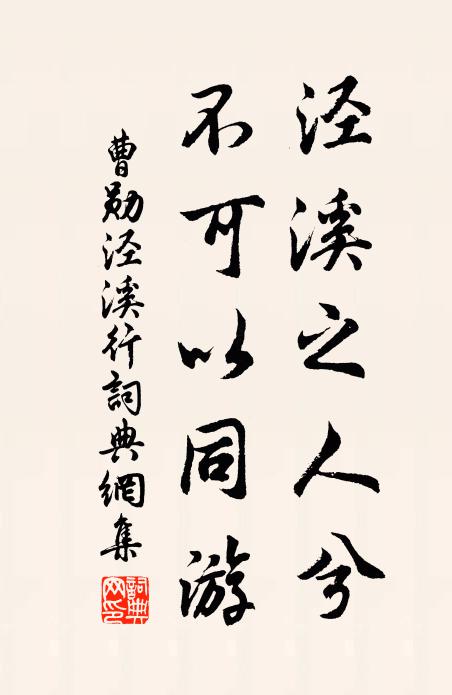 泾溪之人兮
不可以同游
曹勋泾溪行詞典網集
詞典网印